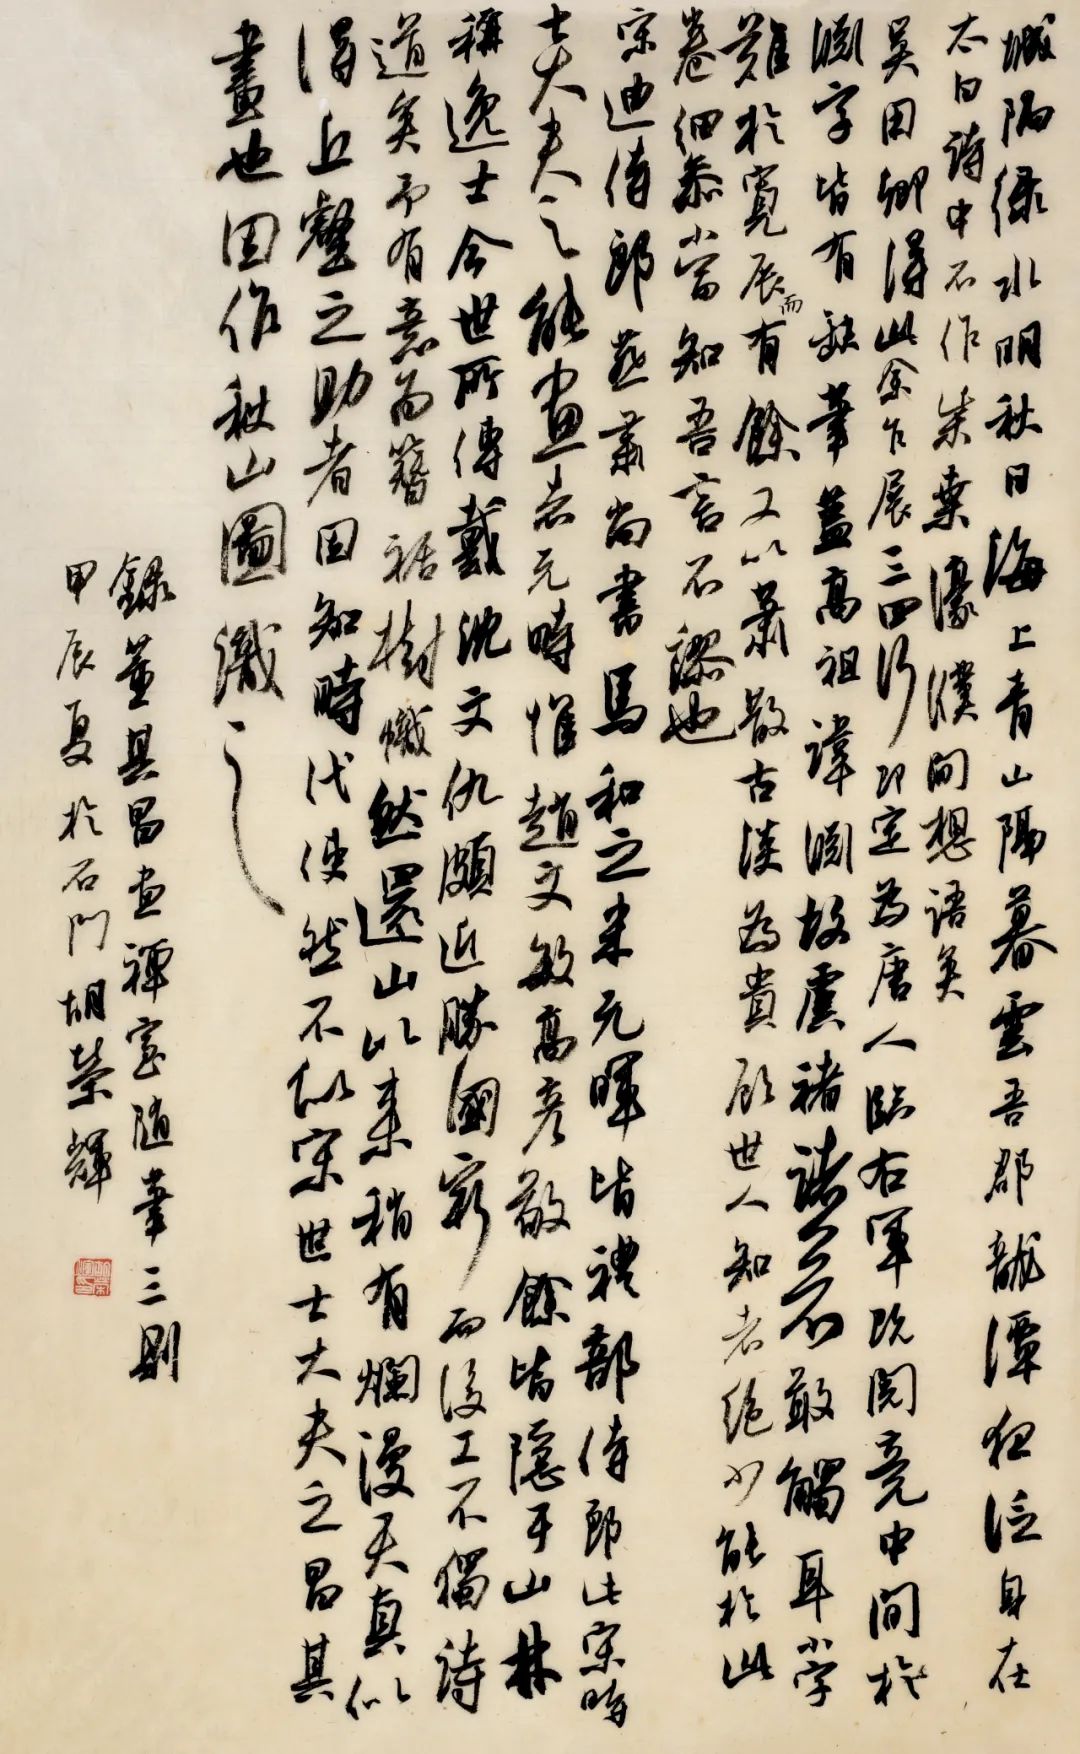 城隅綠水明秋日海上青山隔暮雲吾郡龍潭狂泛身在
太白詩中不作朱葉濠濮間想語矣
吳用卿得此余乍展三四行即定為唐人臨右軍既閱竟中間於
淵字皆有缺筆蓋高祖諱淵故虞褚諸不敢觸耳小字
難於寬展而有餘又以蕭散古淡為貴顧世人知者絕少能於此
卷細參當知吾言不謬也
宋迪侍郎燕肅尚書馬和之米元暉皆禮部侍郎此宋時
士大夫之能畫者元時惟趙文敏高彥敬餘皆隱于山林
稱逸士今世所傳戴沈文仇頗近勝國窮而後工不獨詩
道矣予有意為簪裾樹幟然還山以來稍有爛漫天真似
得丘壑之助者因知時代使然不似宋世士大夫之昌其
畫也因作秋山圖識之
錄董其昌畫禪室隨筆三則
甲辰夏於石門胡榮輝